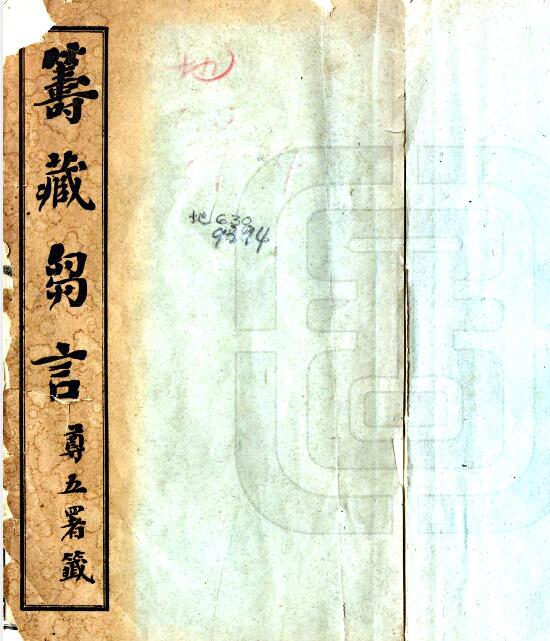 籌藏芻言
尊五署籤
地
地630
9394